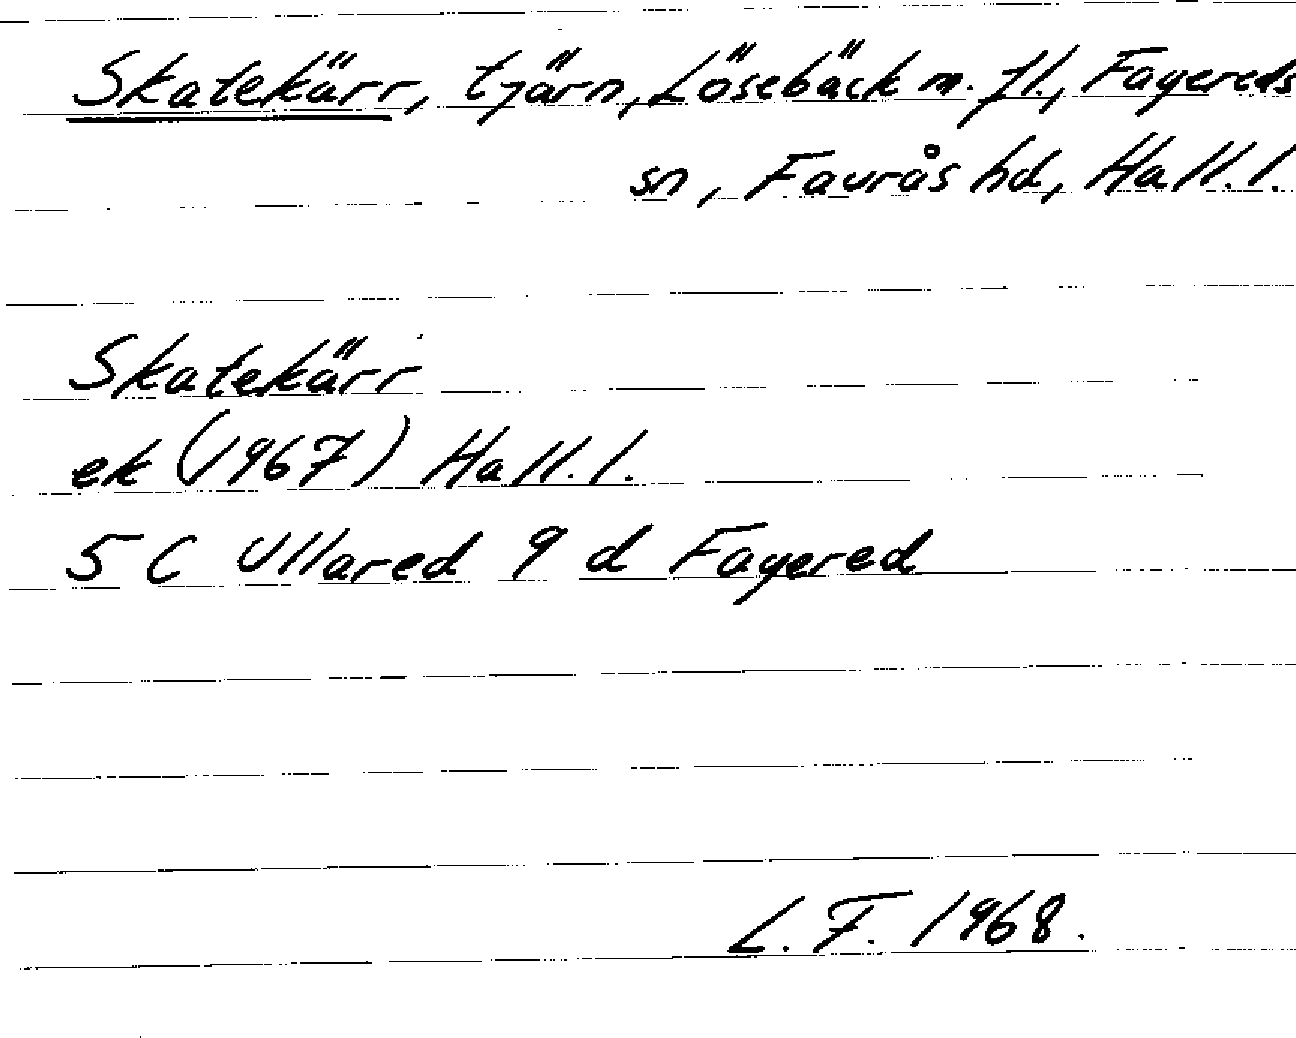 Skatekärr, tjärn, Lösebäck m. fl., Fagereds
sn, Faurås hd, Hall. l.
Skatekärr
ek (1967) Hall. l.
5 C Ullared 9 d Fagered
L. F. 1968.